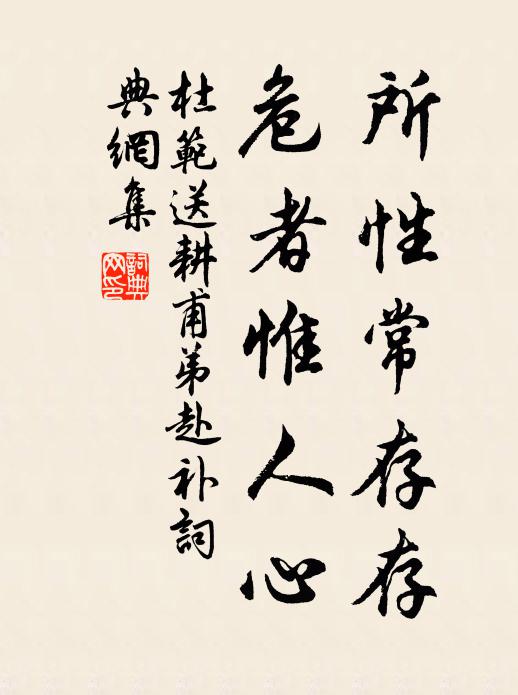 所性常存存
危者惟人心
杜範送耕甫弟赴补詞
典網集
詞典
网印